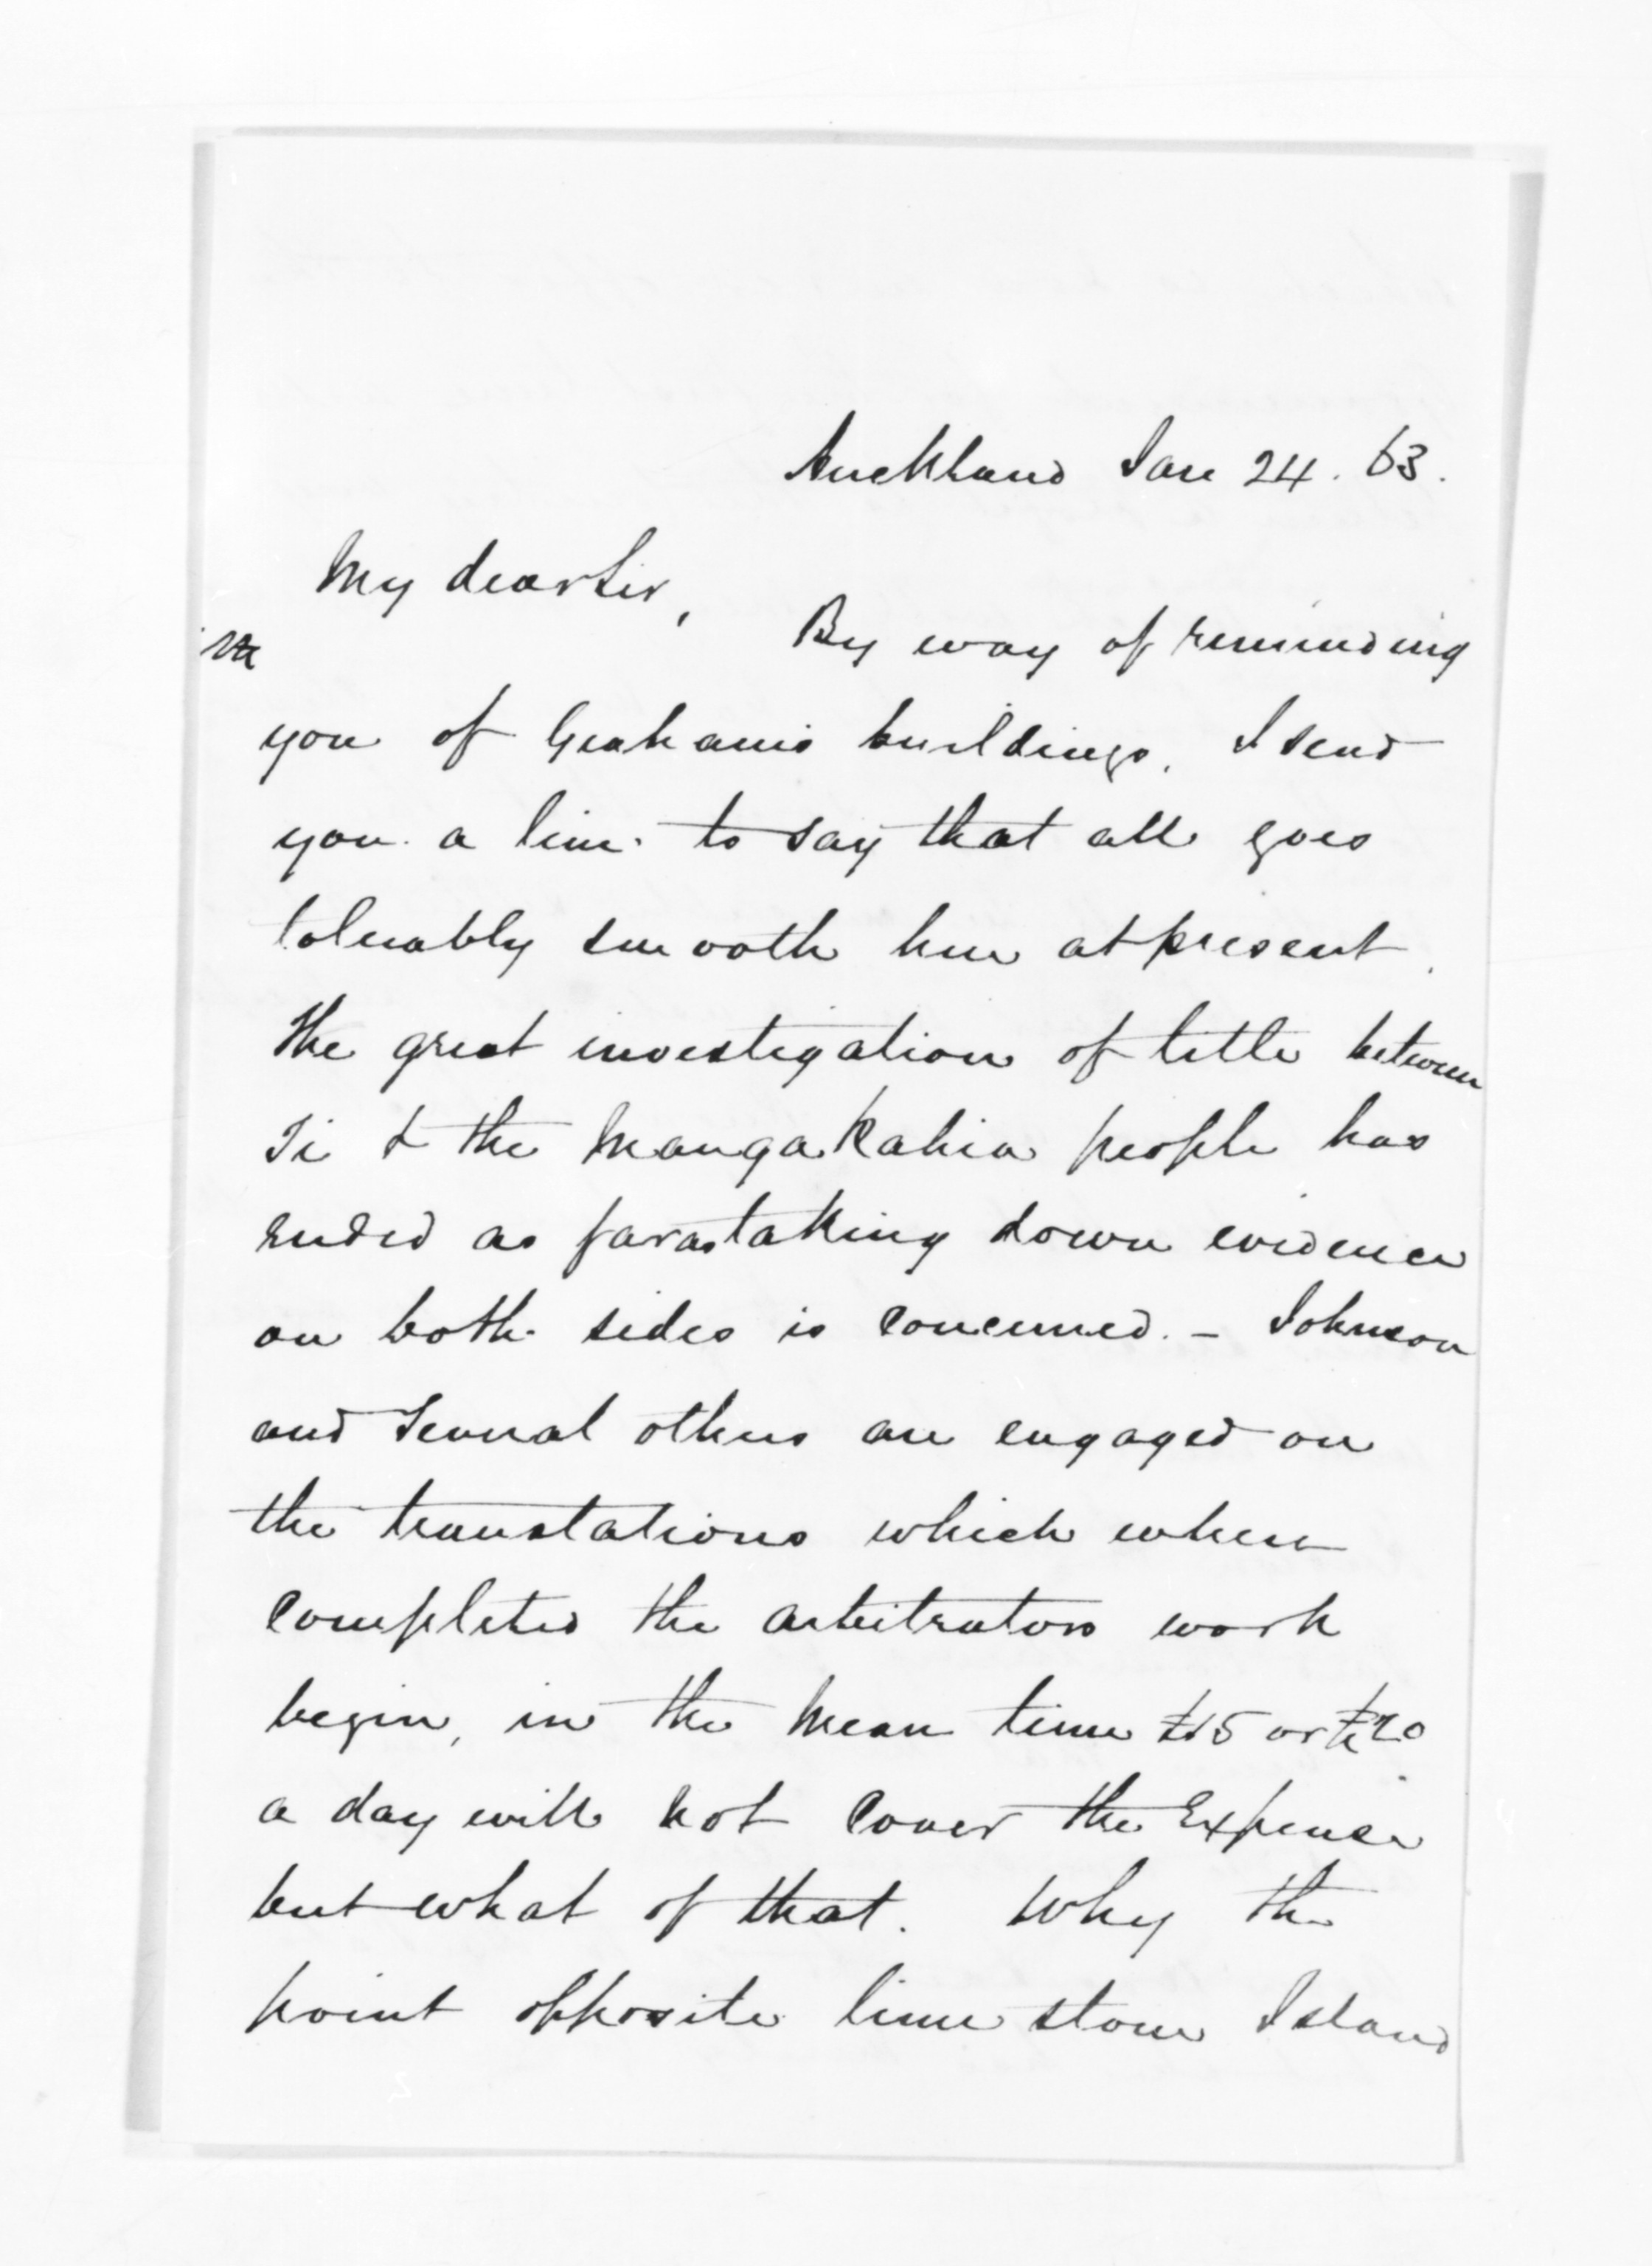 Auckland Jan 24. 63.
My dear Sir,
By way of reminding
you of Grahams buildings, I send
you a line to say that all goes
tolerably smooth here at present.
The great investigation of title between
Ti & the MangaKahia people has
ended as far as taking down evidence
on both sides is concerned. - Johnson
and several others are engaged on
the translations which when
completed the arbitrators work
begin, in the mean time £15 or £20
a day will not cover the Expense
but what of that. Why the
point opposite lime stone Island